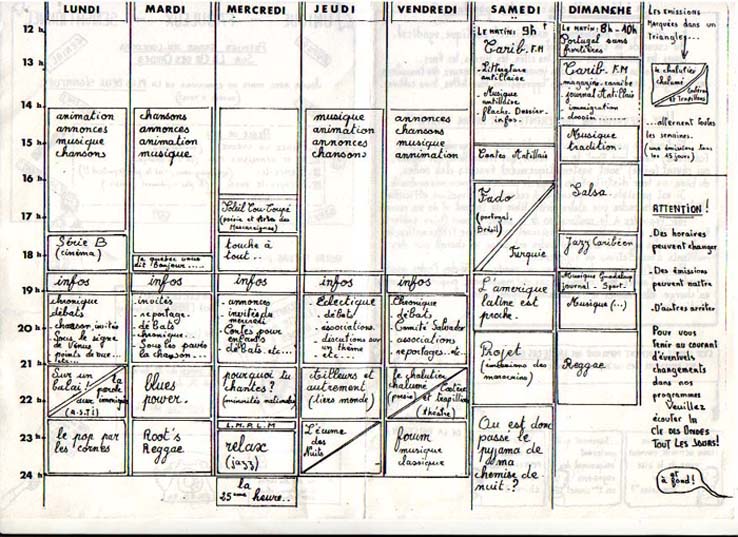 LUNDI
MARDI
MERCREDI
JEUDI
VENDREDI
SAMEDI
DIMANCHE
12 h
13 h
14 h
15 h
16 h
17 h
18 h
19 h
20 h
21 h
22 h
23 h
24 h
animation
annonces
musique
chansons
Série B
(cinéma)
infos
chronique
débats
chanson, invités
Sous le signe
de Vénus
points de vue...
Sur un
balai!
la
parole
aux immigrés
(A.S.T.I)
le pop par
les cornes
chansons
annonces
animation
musique
le quebec vous
dit "Bonjour.....
infos
invités
reportage.
débats.
chronique..
Sous les pavés
la chanson...
blues
power.
Root's
Reggae
Soleil Cou-Coupé
(poésie et Arts des
Mascareignes)
touche à
tout..
infos
annonces
invités du
mercredi
Contes pour
enfants
débats. etc...
pourquoi tu
chantes?
(minorités nationales)
L.M.R.L.M
relax
(jazz)
la
25ème heure..
musique
animation
annonces
chansons
infos
Eclectique
débats
associations.
discutions sur
un thème
etc...
Ailleurs et
autrement
(tiers monde)
L'écume
des
Nuits
annonces
chansons
musique
annimation
infos
Chronique
débats
Comité Salvador
associations
reportages.etc..
le chalutier
chaluné
(poésie)
Castries
et trapillons
(théâtre)
forum
musique
classique
LE MATIN: 9h
Carib. F.M
Littérature
antillaise.
Musique
antillaise
flache. Dossier-
infos.
Contes Antillais
Fado
(portugal,
Brésil)
Turquie
L'amerique
latine est
proche.
Projet
(émissions des
marocains)
Ou est donc
passe le
pyjama de
ma
chemise de
nuit.?
LE MATIN: 8h - 10h
Portugal sans
frontières
Carib. F.M
magazine. caraïbe
journal Antillais
immigration
dossier.....
Musique
tradition.
Salsa.
Jazz Caribéen
Musique Guadeloup
journal - Sport.
Musique (...)
Reggae
Les Emissions
Marquées dans un
Triangle...
le chalutier
chaluné
et Trapillons
...alternent toutes
les semaines.
(une émissions tous
les 15 jours)
ATTENTION!
.Des horaires
peuvent changer
.Des émissions
peuvent naître
.D'autres arrêter
Pour vous
tenir au courant
d'éventuels
changements
dans nos
programmes
Veuillez
écouter la
CLE DES ONDES
TOUT LES JOURS!
et
à fond!